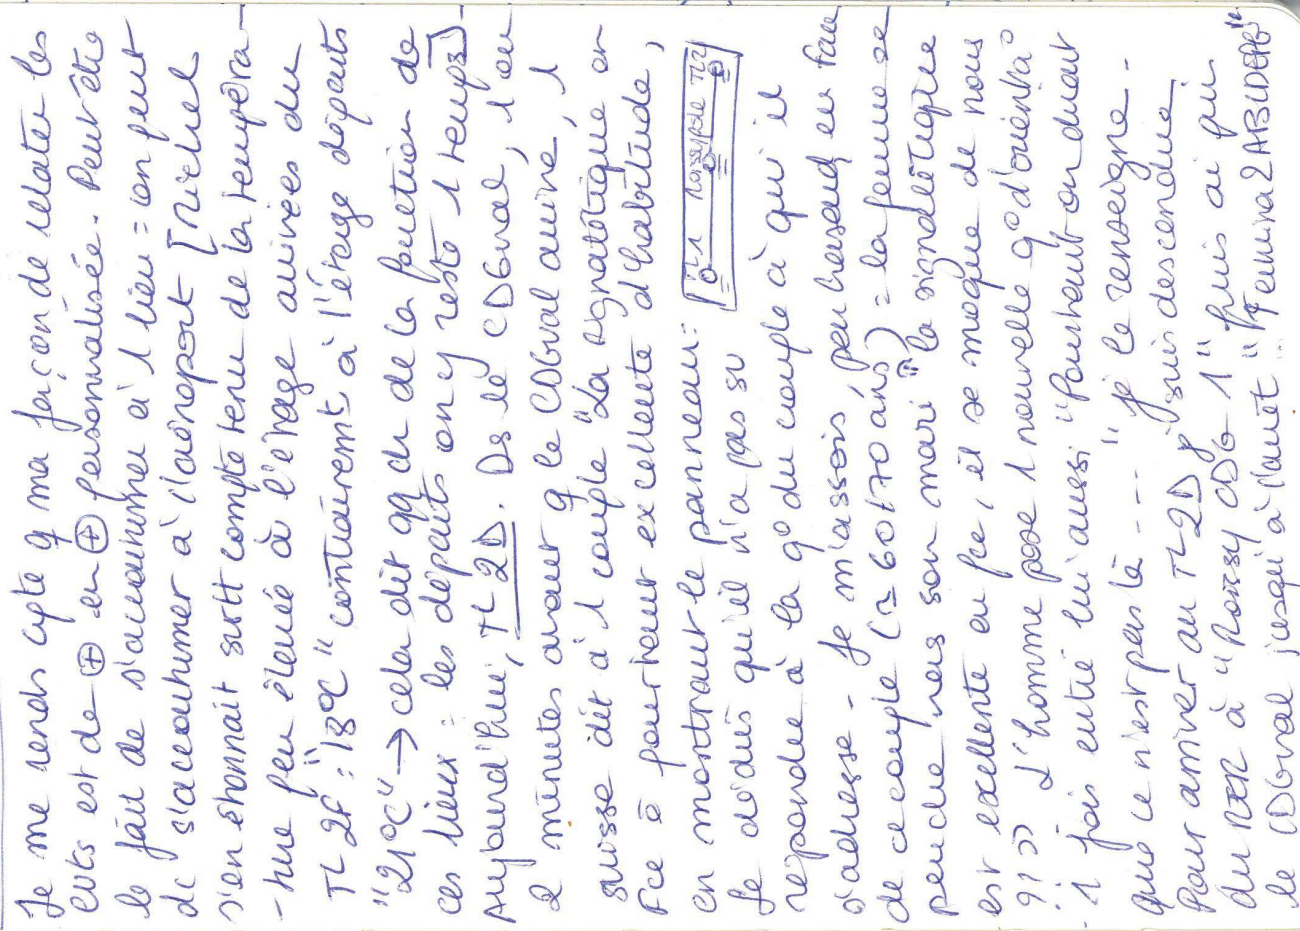 Je me rends cpte q ma façon de relater les
evts est de ⊕ en ⊕ personnalisée. Peut être
le fait de s'accoutumer à 1 lieu = on peut
dc s'accoutumer à l'aéroport [Michel
s'en étonnait surtt compte tenu de la tempéra-
-ture peu élevée à l'étage arrivées du
TL 2F : "18°C" contrairement à l'étage départs
"21°C" → cela dit qq ch de la fonction de
ces lieux : les départs on y reste 1 temps]
Aujourd'hui, TL 2D. Ds le CDGval, 1 ou
2 minutes avant q le CDGval arrive, 1
suisse dit à 1 couple "La signalétique en
Fce è pourtant excellente d'habitude,
en montrant le panneau : TL1 Roissypole TL2
Je déduis qu'il n'a pas su
répondre à la q° du couple à qui il
s'adresse. Je m'assois, peu hasard, en face
de ce couple (≃ 60 à 70 ans) = la femme se
penche vers son mari "la signalétique
est excellente en fce, il se moque de nous
??" L'homme pose 1 nouvelle q° d'orienta°
1 fois entré lui aussi "Pourtant on dirait
que ce n'est pas là ----" je le renseigne.
Pour arriver au TL2D je suis descendue
du RER à "Roissy CDG 1" puis ai pris
le CDGval jusqu'à l'arrêt "Terminal 2ABCDEFG"